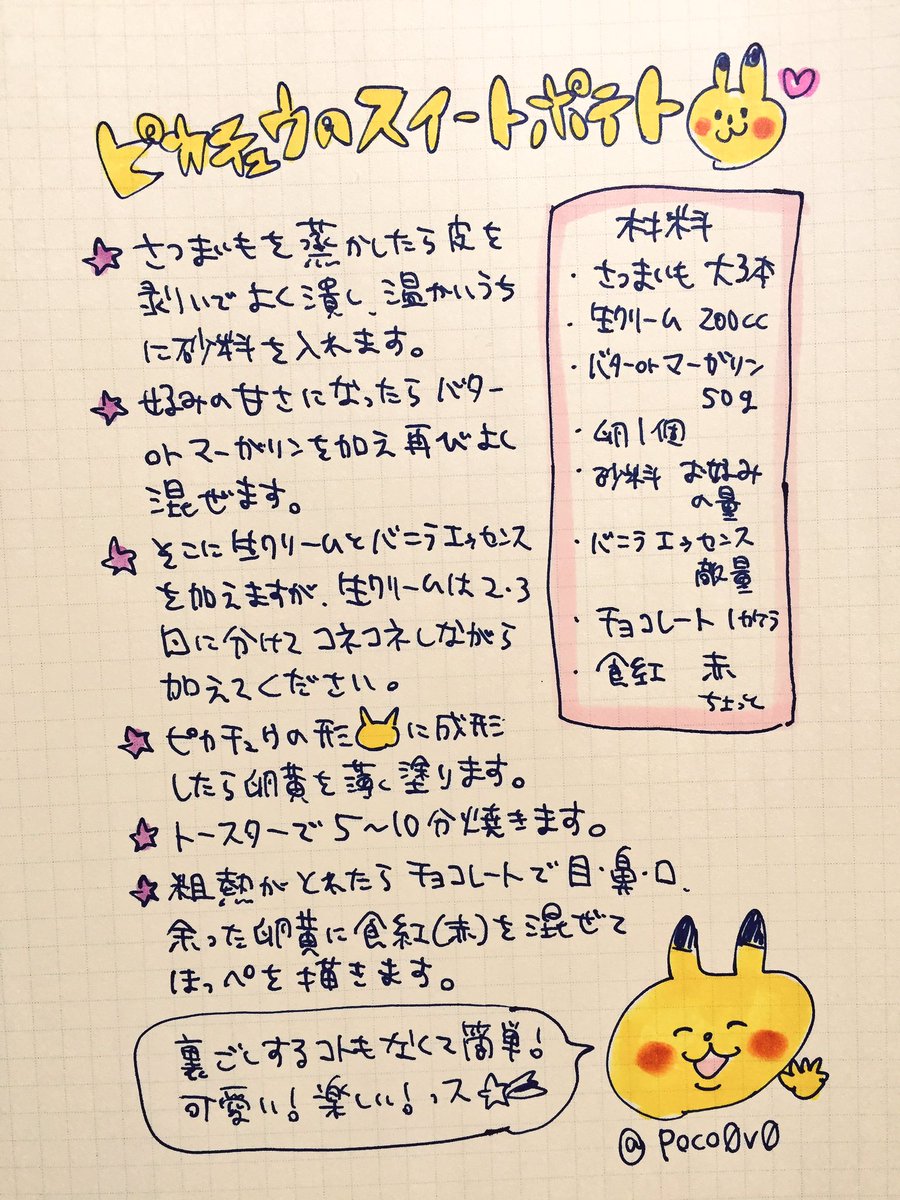 ピカチュウのスイートポテト
さつまいもを蒸かしたら皮を
剥いでよく潰し、温かいうち
に砂糖を入れます。
好みの甘さになったらバター
orマーガリンを加え再びよく
混ぜます。
そこに生クリームとバニラエッセンス
を加えますが、生クリームは2・3
回に分けてコネコネしながら
加えてください。
ピカチュウの形に成形
したら卵黄を薄く塗ります。
トースターで5〜10分焼きます。
粗熱がとれたらチョコレートで目・鼻・口、
余った卵黄に食紅(赤)を混ぜて
ほっぺを描きます。
材料
・さつまいも 大3本
・生クリーム 200cc
・バターorマーガリン
50g
・卵1個
・砂糖 お好み
の量
・バニラエッセンス
敵量
・チョコレート 1かけら
・食紅 赤
ちょっと
裏ごしするコトもなくて簡単!
可愛い!楽しい!っス
@poco0v0